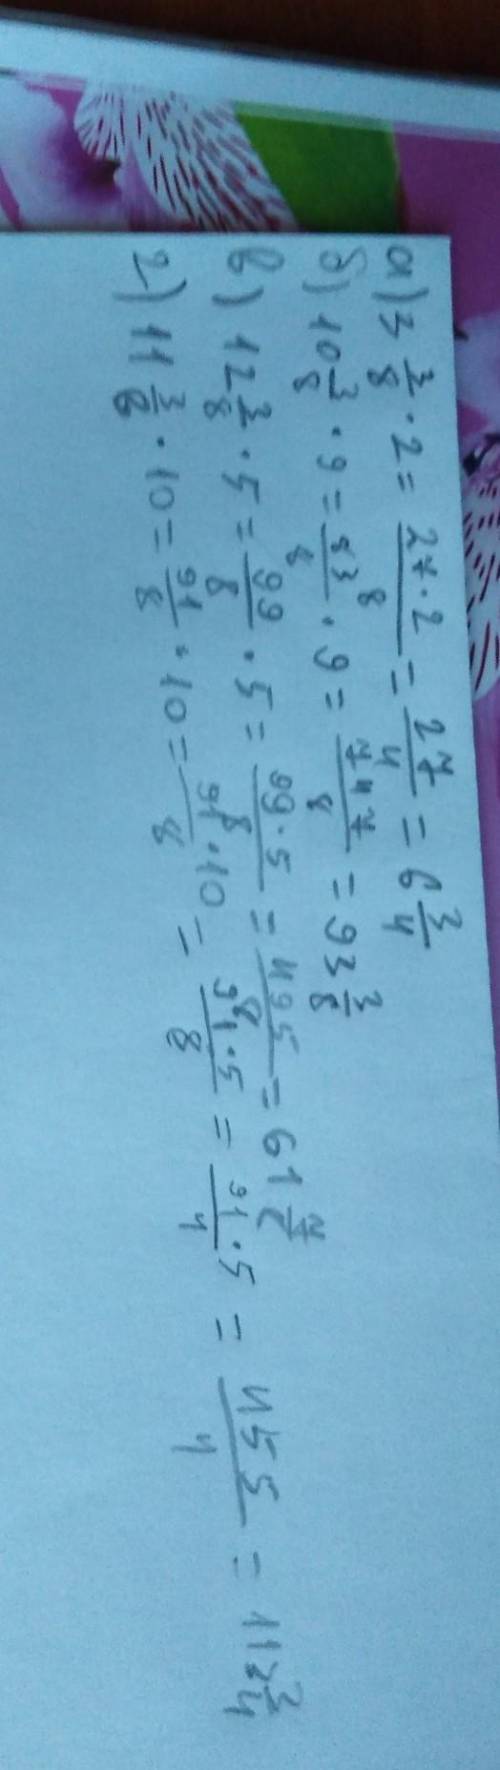 а) 3 3/8 · 2 = 27·2/8 = 27/4 = 6 3/4
б) 10 3/8 · 9 = 83/8 · 9 = 747/8 = 93 3/8
в) 12 3/8 · 5 = 99/8 · 5 = 99·5/8 = 495/8 = 61 7/8
г) 11 3/8 · 10 = 91/8 · 10 = 91·10/8 = 91·5/8 = 91·5/4 = 455/4 = 113 3/4